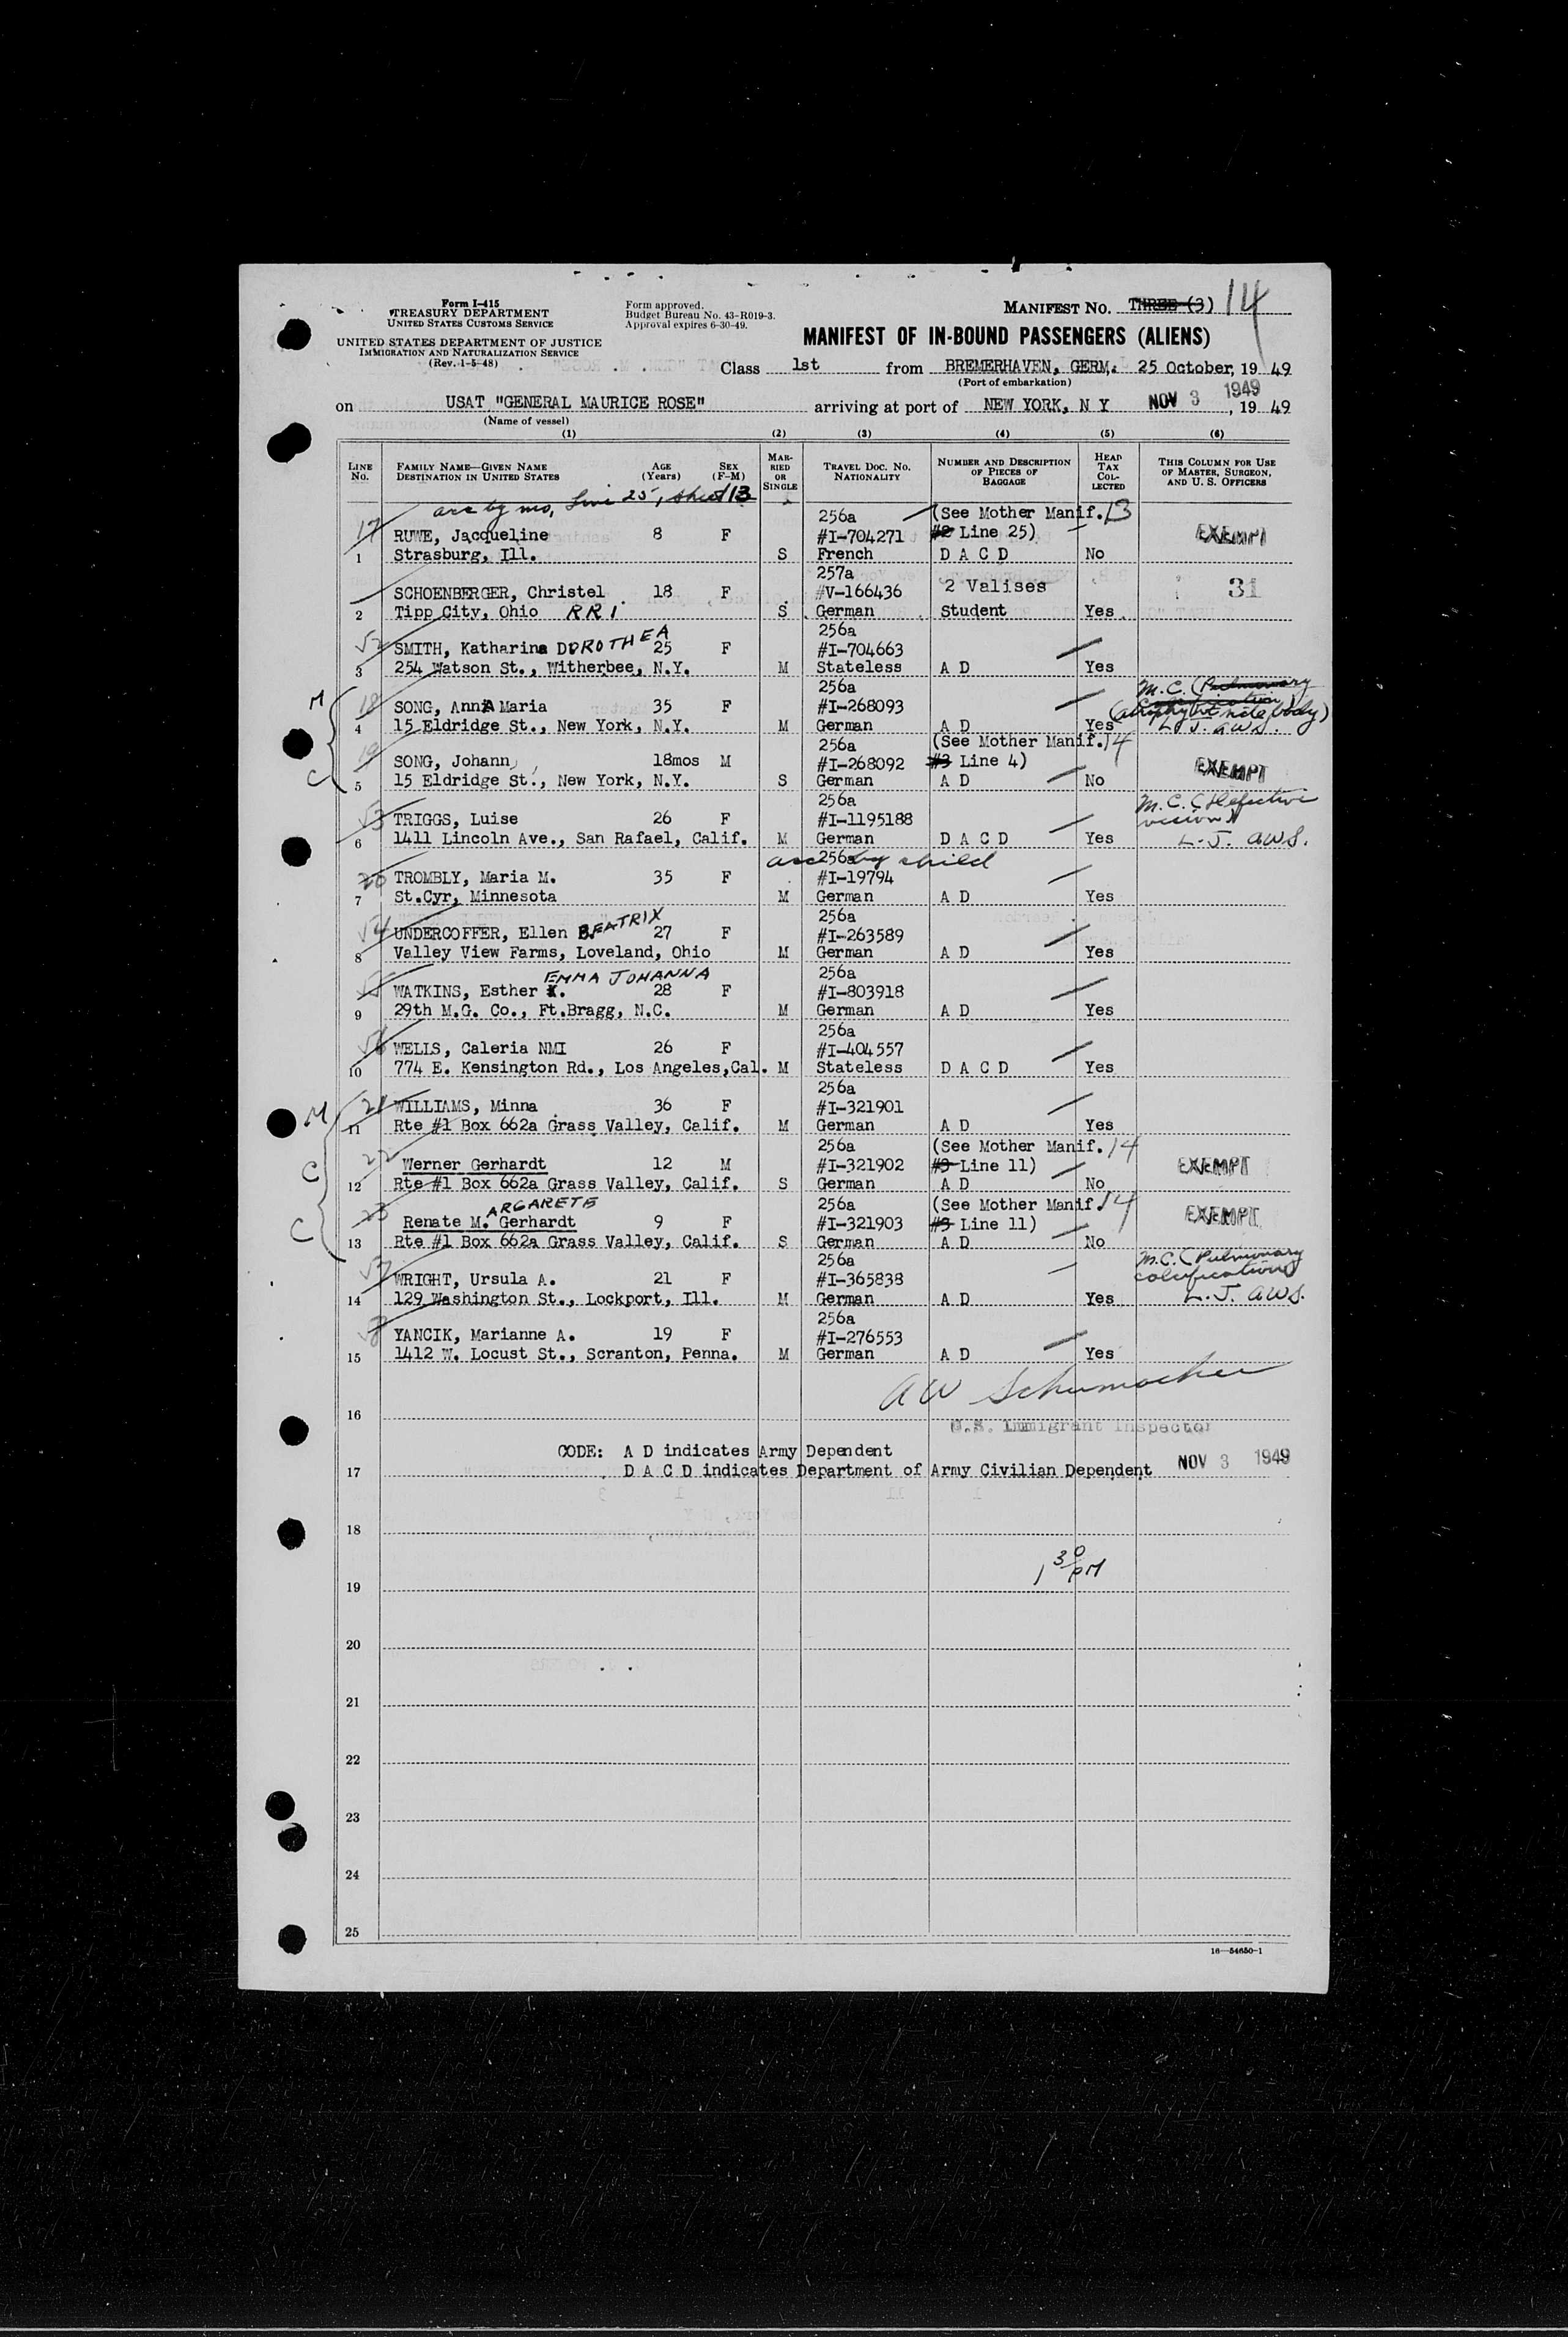 Form I-415
TREASURY DEPARTMENT
UNITED STATES CUSTOMS SERVICE
UNITED STATES DEPARTMENT OF JUSTICE
IMMIGRATION AND NATURALIZATION SERVICE
(Rev. 1-5-48)
Form approved.
Budget Bureau No. 43-R019-3.
Approval expires 6-30-49.
MANIFEST NO. THREE (3) 14
MANIFEST OF IN-BOUND PASSENGERS (ALIENS)
Class 1st from BREMERHAVEN, GERM. 25 October, 19 49
(Port of embarkation)
on USAT "GENERAL MAURICE ROSE" arriving at port of NEW YORK, N Y NOV 3 1949, 19 49
(Name of vessel)
(1) (2) (3) (4) (5) (6)
LINE No. FAMILY NAME—GIVEN NAME DESTINATION IN UNITED STATES AGE (Years) SEX (F-M) MARRIED OR SINGLE TRAVEL DOC. NO. NATIONALITY NUMBER AND DESCRIPTION OF PIECES OF BAGGAGE HEAD TAX COLLECTED THIS COLUMN FOR USE OF MASTER, SURGEON, AND U. S. OFFICERS
acc by mo, Line 25, sheet 13
256a (See Mother Manif. 13
17 RUWE, Jacqueline 8 F #I-704271 #2 Line 25) EXEMPT
1 Strasburg, Ill. S French D A C D No
257a
SCHOENBERGER, Christel 18 F #V-166436 2 Valises 31
2 Tipp City, Ohio RR1 S German Student Yes
256a
52 SMITH, Katharina DOROTHEA 25 F #I-704663
3 254 Watson St., Witherbee, N.Y. M Stateless A D Yes
256a M.C. (Pulmonary
M 18 SONG, AnnA Maria 35 F #I-268093
4 15 Eldridge St., New York, N.Y. M German A D Yes L. J. AWS.
256a (See Mother Manif. 14
C 19 SONG, Johann 18mos M #I-268092 #3 Line 4) EXEMPT
5 15 Eldridge St., New York, N.Y. S German A D No
256a M.C. (Defective
53 TRIGGS, Luise 26 F #I-1195188 vision)
6 1411 Lincoln Ave., San Rafael, Calif. M German D A C D Yes L. J. AWS.
256a acc by child
20 TROMBLY, Maria M. 35 F #I-19794
7 St.Cyr, Minnesota M German A D Yes
256a
54 UNDERCOFFER, Ellen BEATRIX 27 F #I-263589
8 Valley View Farms, Loveland, Ohio M German A D Yes
EMMA JOHANNA 256a
55 WATKINS, Esther 28 F #I-803918
9 29th M.G. Co., Ft.Bragg, N.C. M German A D Yes
256a
56 WELLS, Caleria NMI 26 F #I-404557
10 774 E. Kensington Rd., Los Angeles,Cal. M Stateless D A C D Yes
256a
M 21 WILLIAMS, Minna 36 F #I-321901
11 Rte #1 Box 662a Grass Valley, Calif. M German A D Yes
256a (See Mother Manif. 14
C 22 Werner Gerhardt 12 M #I-321902 #3 Line 11) EXEMPT
12 Rte #1 Box 662a Grass Valley, Calif. S German A D No
ARGARETE 256a (See Mother Manif. 14
C 23 Renate M. Gerhardt 9 F #I-321903 #3 Line 11) EXEMPT
13 Rte #1 Box 662a Grass Valley, Calif. S German A D No
256a M.C. (Pulmonary
57 WRIGHT, Ursula A. 21 F #I-365838 calcification)
14 129 Washington St., Lockport, Ill. M German A D Yes L. J. AWS.
256a
58 YANCIK, Marianne A. 19 F #I-276553
15 1412 W. Locust St., Scranton, Penna. M German A D Yes
AW Schumacher
16
U.S. Immigrant Inspector
CODE: A D indicates Army Dependent
17 D A C D indicates Department of Army Civilian Dependent NOV 3 1949
18
1 30 PM
19
20
21
22
23
24
25
16—54650-1